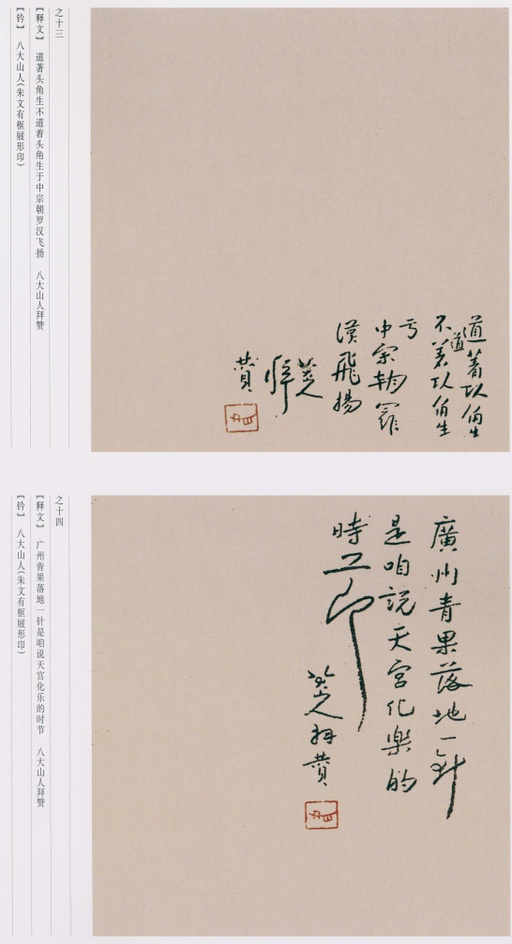 道著头角生
不道着头角生于
中宗朝羅
漢飛揚
八大山人拜
賛
之十三
【释文】 道著头角生不道着头角生于中宗朝罗汉飞扬 八大山人拜赞
【钤】 八大山人(朱文有框屐形印)
廣州青果落地一針
是咱説天宮化樂的
時节
八大山人拜賛
之十四
【释文】 广州青果落地一针是咱说天宫化乐的时节 八大山人拜赞
【钤】 八大山人(朱文有框屐形印)